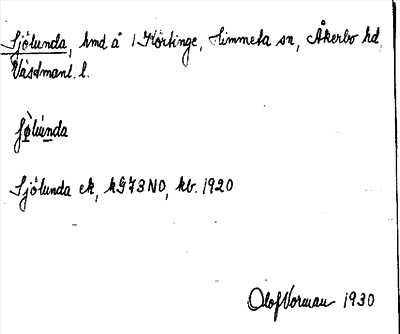 Sjölunda, hmd å 1 Körtinge, Himmeta sn, Åkerbo hd,
Västmanl. l.
Sjölunda ek, kG73NO, kb. 1920
Olof Vorman 1930